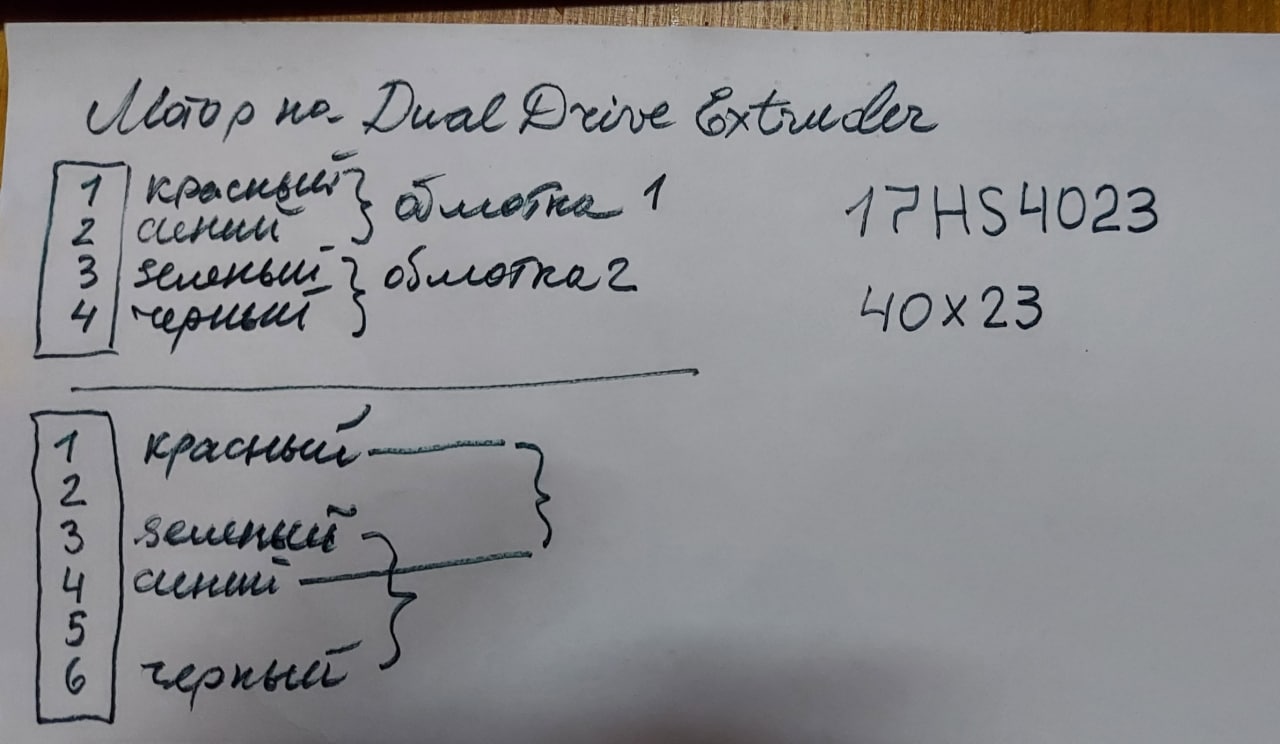 Мотор на Dual Drive Extruder
1 красный
2 синий
обмотка 1
3 зеленый
4 черный
обмотка 2
17HS4023
40x23
1 красный
2
3 зеленый
4 синий
5
6 черный